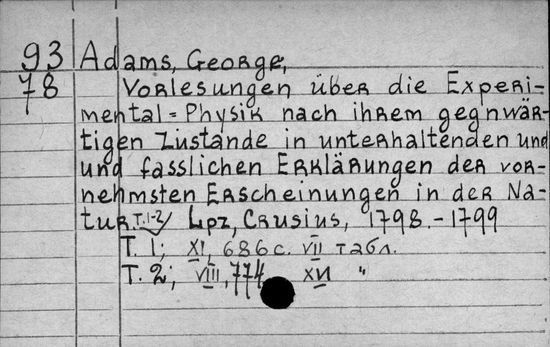 93 Adams, George,
78 Vorlesungen über die Experi-
mental = Physik nach ihrem gegnwär-
tigen Zustande in unterhaltenden und
und fasslichen Erklärungen der vor-
nehmsten Erscheinungen in der Na-
tur. T.1-2 Lpz, Crusius, 1798.-1799
T. 1; XI, 686 с. VII табл.
T. 2; VIII, 774 XVI "